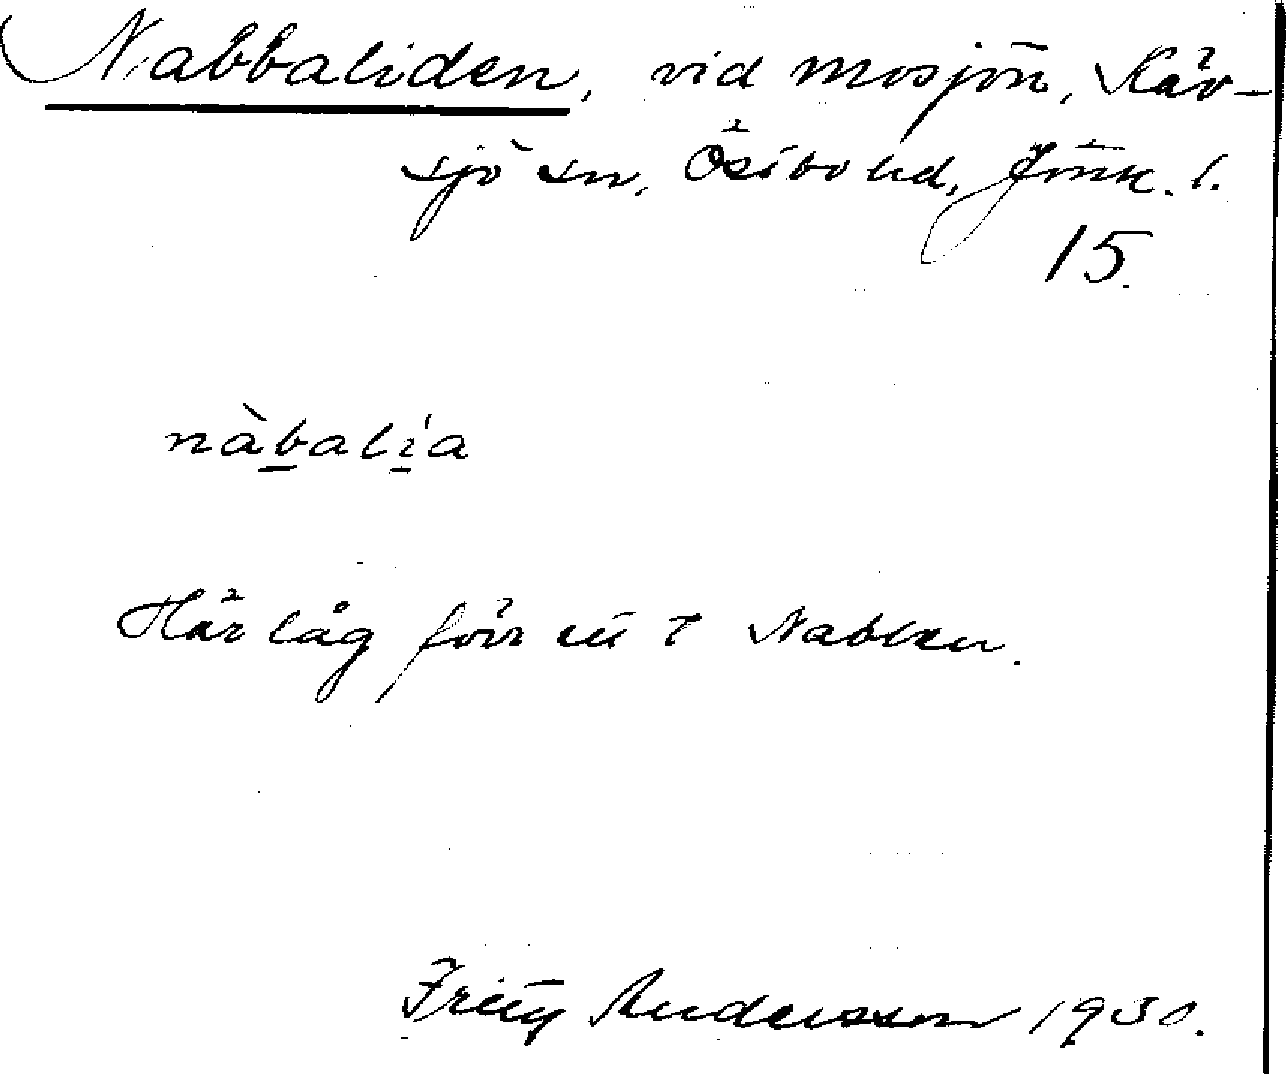 Nabbaliden, vid Mosjön, Käv-
sjö sn, Östbo hd, Jönk. l.
15.
nàbalía
Här låg förr ett T Nabben.
Fritz Andersson 1930.